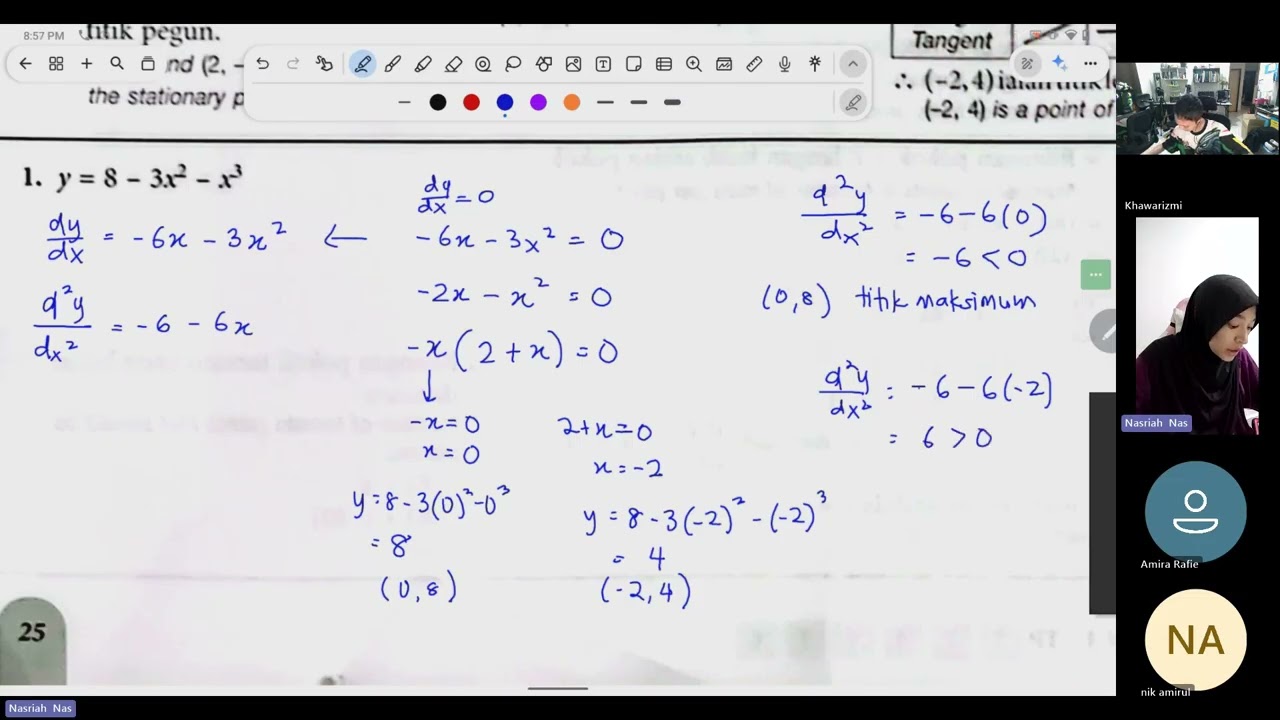 8:57 PM
titik pegun.
nd (2, –
the stationary p
Tangent
∴ (–2, 4) ialah titik
(–2, 4) is a point of
1. y = 8 – 3x² – x³
dy/dx = -6x - 3x² ←
d²y/dx² = -6 - 6x
dy/dx = 0
-6x - 3x² = 0
-2x - x² = 0
-x(2 + x) = 0
-x = 0
x = 0
y = 8 - 3(0)² - 0³
= 8
(0, 8)
2 + x = 0
x = -2
y = 8 - 3(-2)² - (-2)³
= 4
(-2, 4)
d²y/dx² = -6 - 6(0)
= -6 < 0
(0, 8) titik maksimum
d²y/dx² = -6 - 6(-2)
= 6 > 0
25
Khawarizmi
Nasriah Nas
Amira Rafie
NA
nik amirul
Nasriah Nas